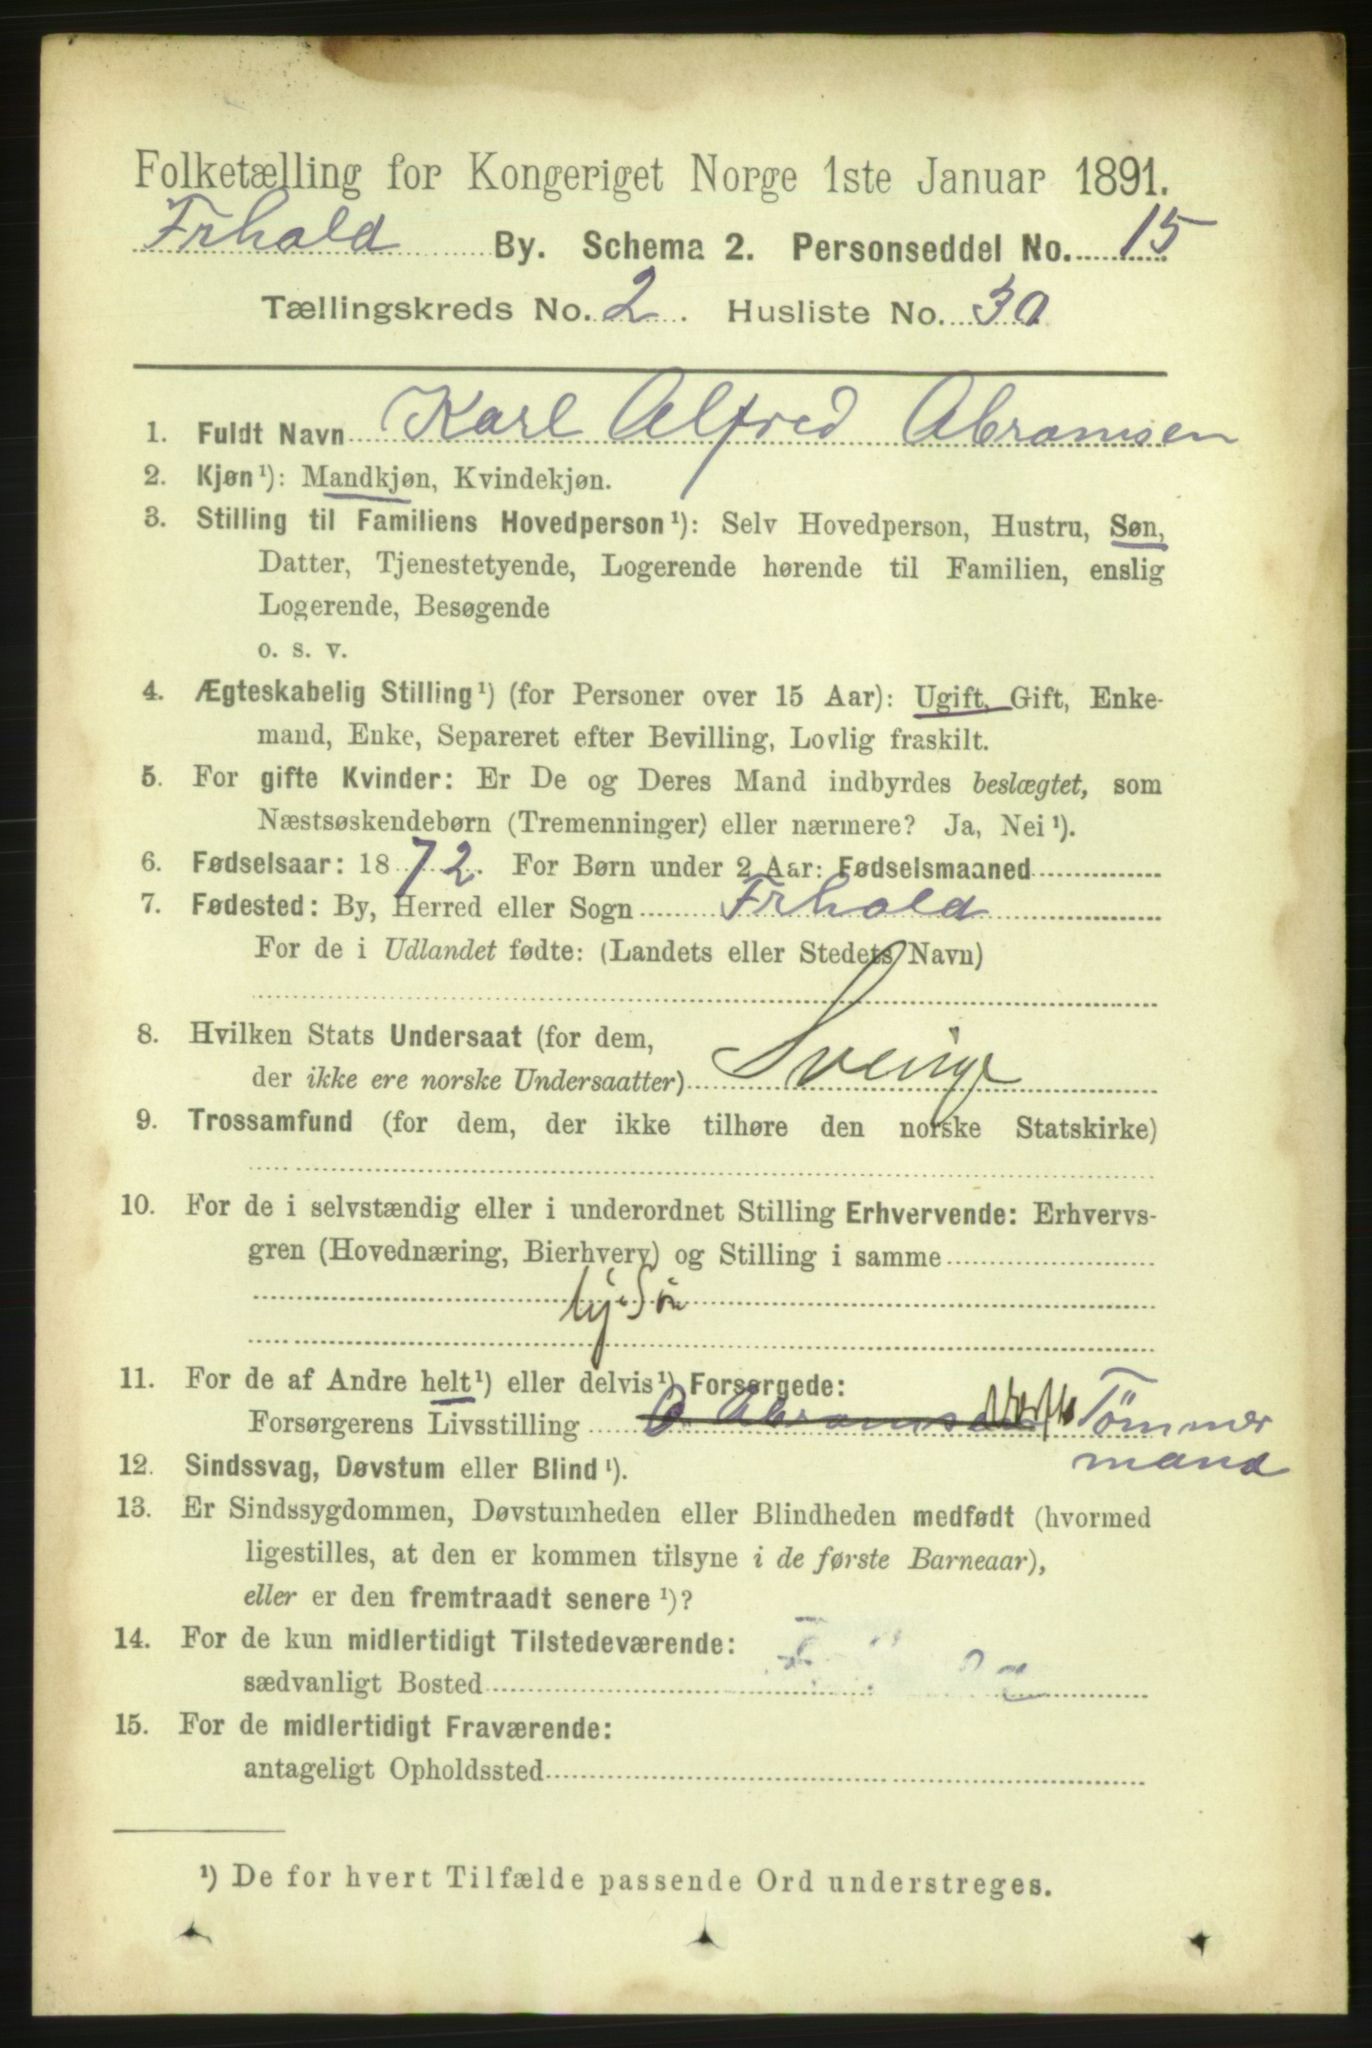 Folketælling for Kongeriget Norge 1ste Januar 1891.
Frhald By. Schema 2. Personseddel No. 15
Tællingskreds No. 2. Husliste No. 30
1. Fuldt Navn Karl Alfred Abramsen
2. Kjøn¹): Mandkjøn, Kvindekjøn.
3. Stilling til Familiens Hovedperson¹): Selv Hovedperson, Hustru, Søn,
Datter, Tjenestetyende, Logerende hørende til Familien, enslig
Logerende, Besøgende
o. s. v.
4. Ægteskabelig Stilling¹) (for Personer over 15 Aar): Ugift, Gift, Enke-
mand, Enke, Separeret efter Bevilling, Lovlig fraskilt.
5. For gifte Kvinder: Er De og Deres Mand indbyrdes beslægtet, som
Næstsøskendebørn (Tremenninger) eller nærmere? Ja, Nei¹).
6. Fødselsaar: 1872. For Børn under 2 Aar: Fødselsmaaned
7. Fødested: By, Herred eller Sogn Frhald
For de i Udlandet fødte: (Landets eller Stedets Navn)
8. Hvilken Stats Undersaat (for dem,
der ikke ere norske Undersaatter) Sverige
9. Trossamfund (for dem, der ikke tilhøre den norske Statskirke)
10. For de i selvstændig eller i underordnet Stilling Erhvervende: Erhvervs-
gren (Hovednæring, Bierhverv) og Stilling i samme
11. For de af Andre helt¹) eller delvis¹) Forsørgede:
Forsørgerens Livsstilling Tömmer
mand
12. Sindssvag, Døvstum eller Blind¹).
13. Er Sindssygdommen, Døvstumheden eller Blindheden medfødt (hvormed
ligestilles, at den er kommen tilsyne i de første Barneaar),
eller er den fremtraadt senere¹)?
14. For de kun midlertidigt Tilstedeværende:
sædvanligt Bosted
15. For de midlertidigt Fraværende:
antageligt Opholdssted
¹) De for hvert Tilfælde passende Ord understreges.